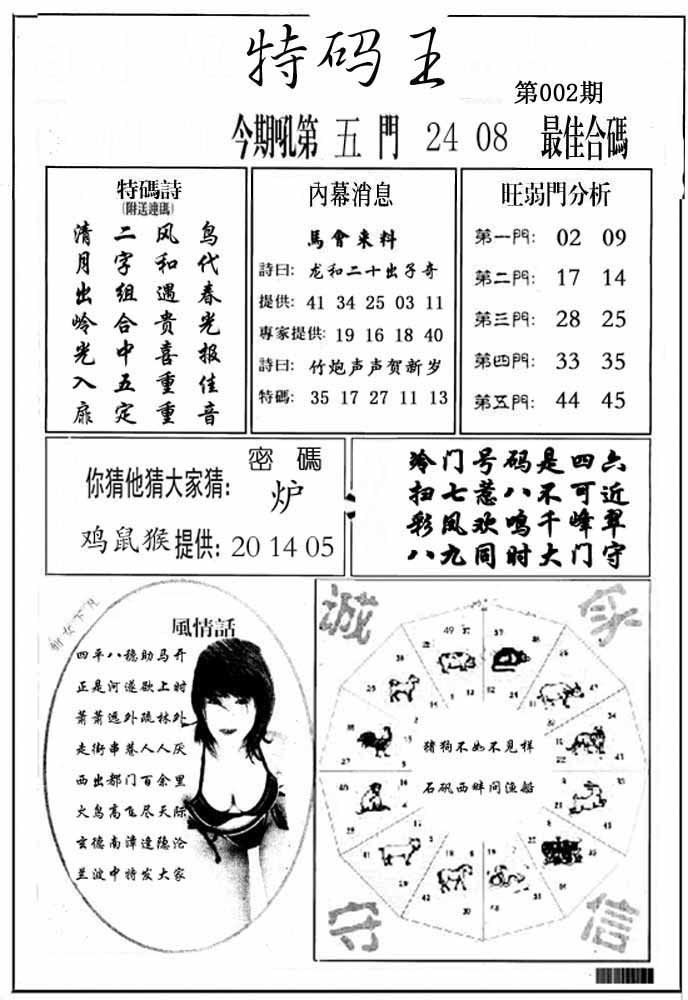 特码王
第002期
今期吼第 五 門 24 08 最佳合碼
特碼詩
(附送連碼)
鸟代春光报佳音
风和遇贵喜重重
二字组合中五定
清月出岭光入扉
內幕消息
馬會来料
詩曰: 龙和二十出子奇
提供: 41 34 25 03 11
專家提供: 19 16 18 40
詩曰: 竹炮声声贺新岁
特碼: 35 17 27 11 13
旺弱門分析
第一門: 02 09
第二門: 17 14
第三門: 28 25
第四門: 33 35
第五門: 44 45
密碼
你猜他猜大家猜: 炉
鸡鼠猴提供: 20 14 05
冷门号码是四六
扫七惹八不可近
彩凤欢鸣千峰翠
八九同时大门守
風情話
四平八稳助马开
正是河遂欲上时
萧萧远外疏林外
走街串巷人人厌
西出都门百余里
大鸟高飞尽天际
玄德南漳逢隐沦
兰波中特发大家
诚
守
信
猪狗不如不见样
石矶西畔问渔船